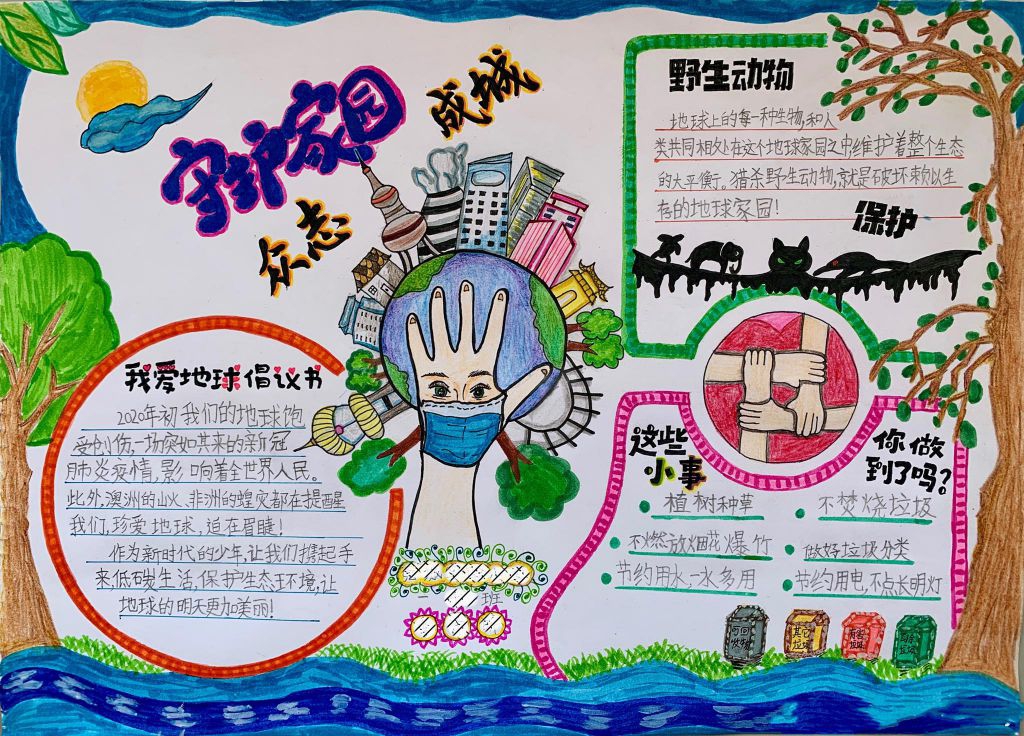 守护家园
众志
成城
我爱地球倡议书
2020年初我们的地球饱
受创伤,一场突如其来的新冠
肺炎疫情,影响着全世界人民。
此外,澳洲的山火、非洲的蝗灾都在提醒
我们,珍爱地球,迫在眉睫!
作为新时代的少年,让我们携起手
来低碳生活,保护生态环境,让
地球的明天更加美丽!
野生动物
地球上的每一种生物,和人
类共同相处在这个地球家园之中维护着整个生态
的大平衡。猎杀野生动物,就是破坏赖以生
存的地球家园!
保护
这些
小事
你做
到了吗?
植树种草
不焚烧垃圾
不燃放烟花爆竹
做好垃圾分类
节约用水一水多用
节约用电,不点长明灯
班
可回
收物
其它
垃圾
有害
垃圾